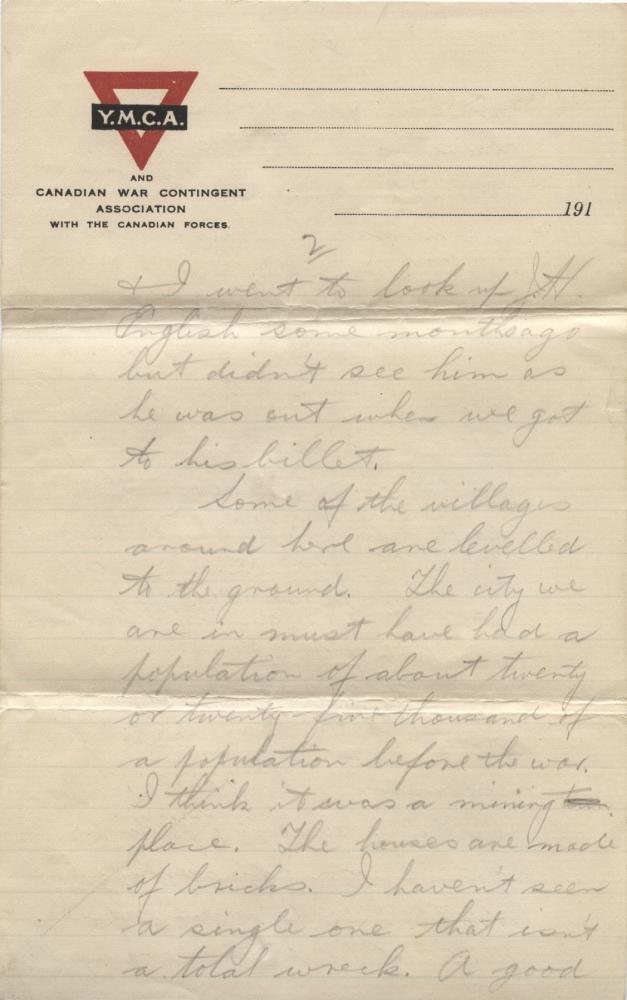 Y.M.C.A.
AND
CANADIAN WAR CONTINGENT
ASSOCIATION
WITH THE CANADIAN FORCES.
191
2
& I went to look up J.H.
English some months ago
but didn't see him as
he was out when we got
to his billet.
Some of the villages
around here are levelled
to the ground. The city we
are in must have had a
population of about twenty
or twenty-five thousand of
a population before the war.
I think it was a mining
place. The houses are made
of bricks. I haven't seen
a single one that isn't
a total wreck. A good